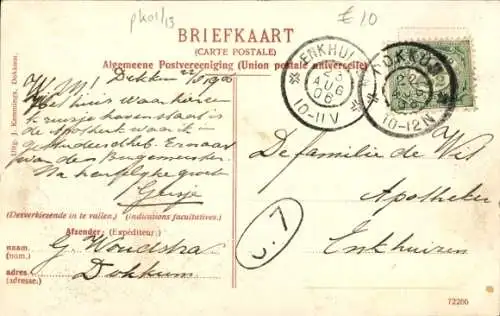 pk01/13
£ 10
BRIEFKAART
(CARTE POSTALE)
Algemeene Postvereeniging (Union postale universelle)
ENKHUI
23
AUG
06
10-11V
DOKKUM
AUG
10-12N
Dokkum
Het huis waarhierven
kruisje boven staat is
de Apotheek waar ik in
Ernaast
van den Burgemeester.
Na hartelijke groet
Geesje
Uitg. J. Kamminga, Dokkum.
(Desverkiezende in te vullen.) (Indications facultatives.)
Afzender: (Expéditeur:)
naam. G. Woudstra
(nom.)
adres Dokkum
(adresse.)
De familie de Wit
Apotheker
Enkhuizen
J. 7
72260